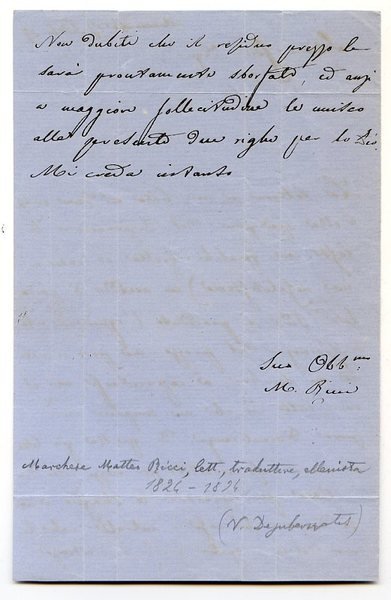 Non dubiti che il residuo prezzo le
sarà prontamente sborsato, ed anzi
a maggior sollecitudine le unisco
alla presente due righe per lo
Mi creda intanto
Suo Obb.mo
M. Ricci
Marchese Matteo Ricci, lett., traduttore, ellenista
1826 - 1896
(V. Degubernatis)